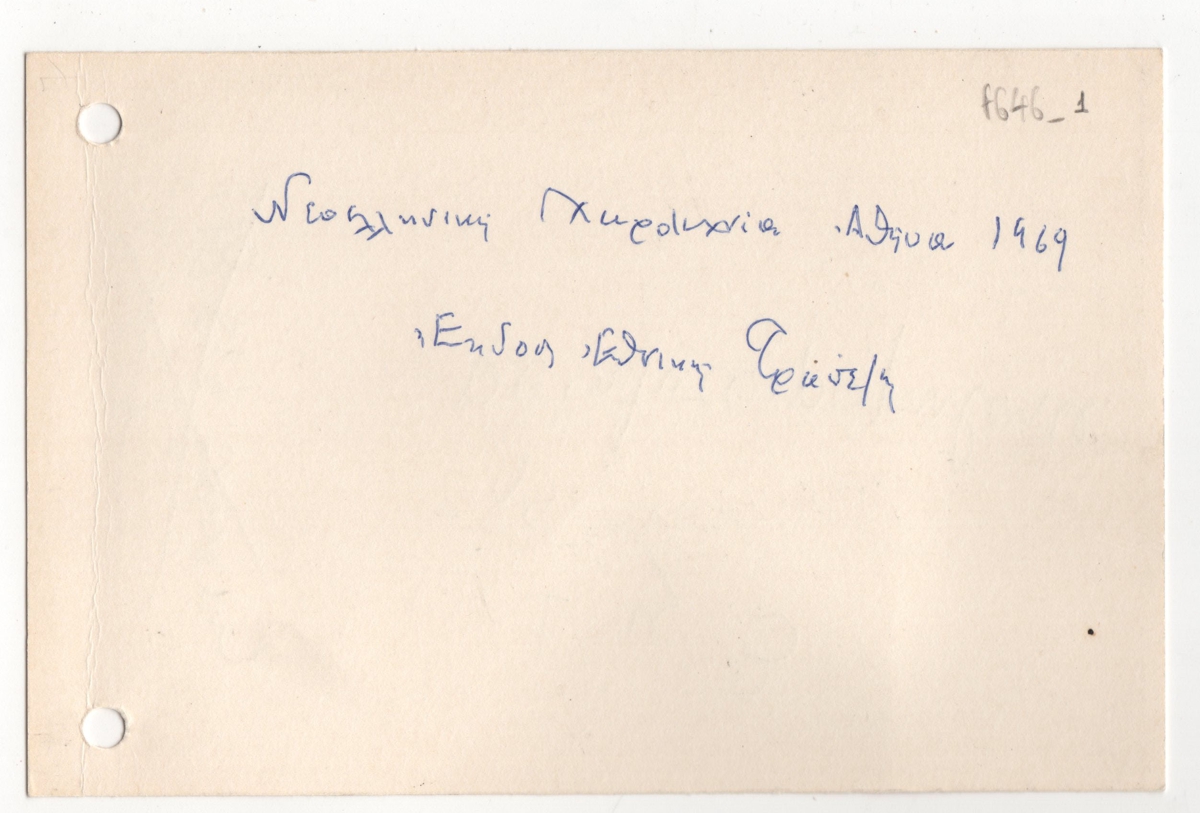 f646_1
Νεοελληνική Χειροτεχνία Ἀθήνα 1969
Ἔκδοση Ἐθνικῆς Τραπέζης